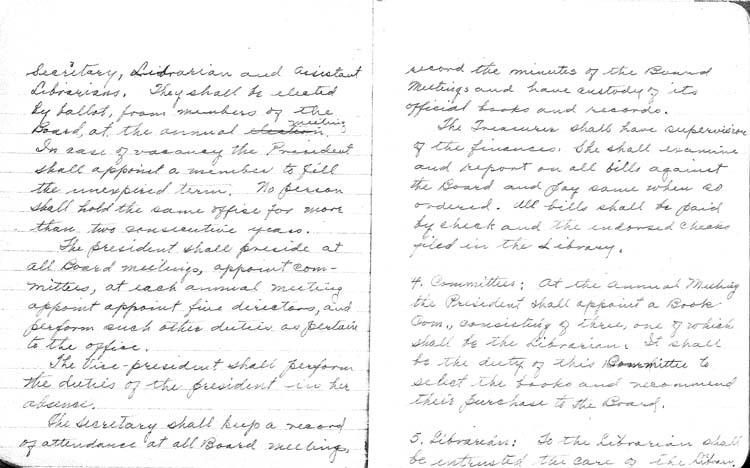 Secretary, Librarian and Assistant
Librarians. They shall be elected
by ballot, from members of the
Board, at the annual election meeting.
In case of vacancy the President
shall appoint a member to fill
the unexpired term. No person
shall hold the same office for more
than two consecutive years.
The president shall preside at
all Board meetings, appoint com-
mittees, at each annual meeting
appoint appoint five directors, and
perform such other duties as pertain
to the office.
The Vice-president shall perform
the duties of the president in her
absence.
The Secretary shall keep a record
of attendance at all Board meetings,
record the minutes of the Board
Meetings and have custody of its
official books and records.
The Treasurer shall have supervision
of the finances. She shall examine
and report on all bills against
the Board and pay same when so
ordered. All bills shall be paid
by check and the endorsed checks
filed in the Library.
4. Committees: At the Annual Meeting
the President shall appoint a Book
Com., consisting of three, one of which
shall be the Librarian. It shall
be the duty of this Committee to
select the books and recommend
their purchase to the Board.
5. Librarian: To the Librarian shall
be entrusted the care of the Library